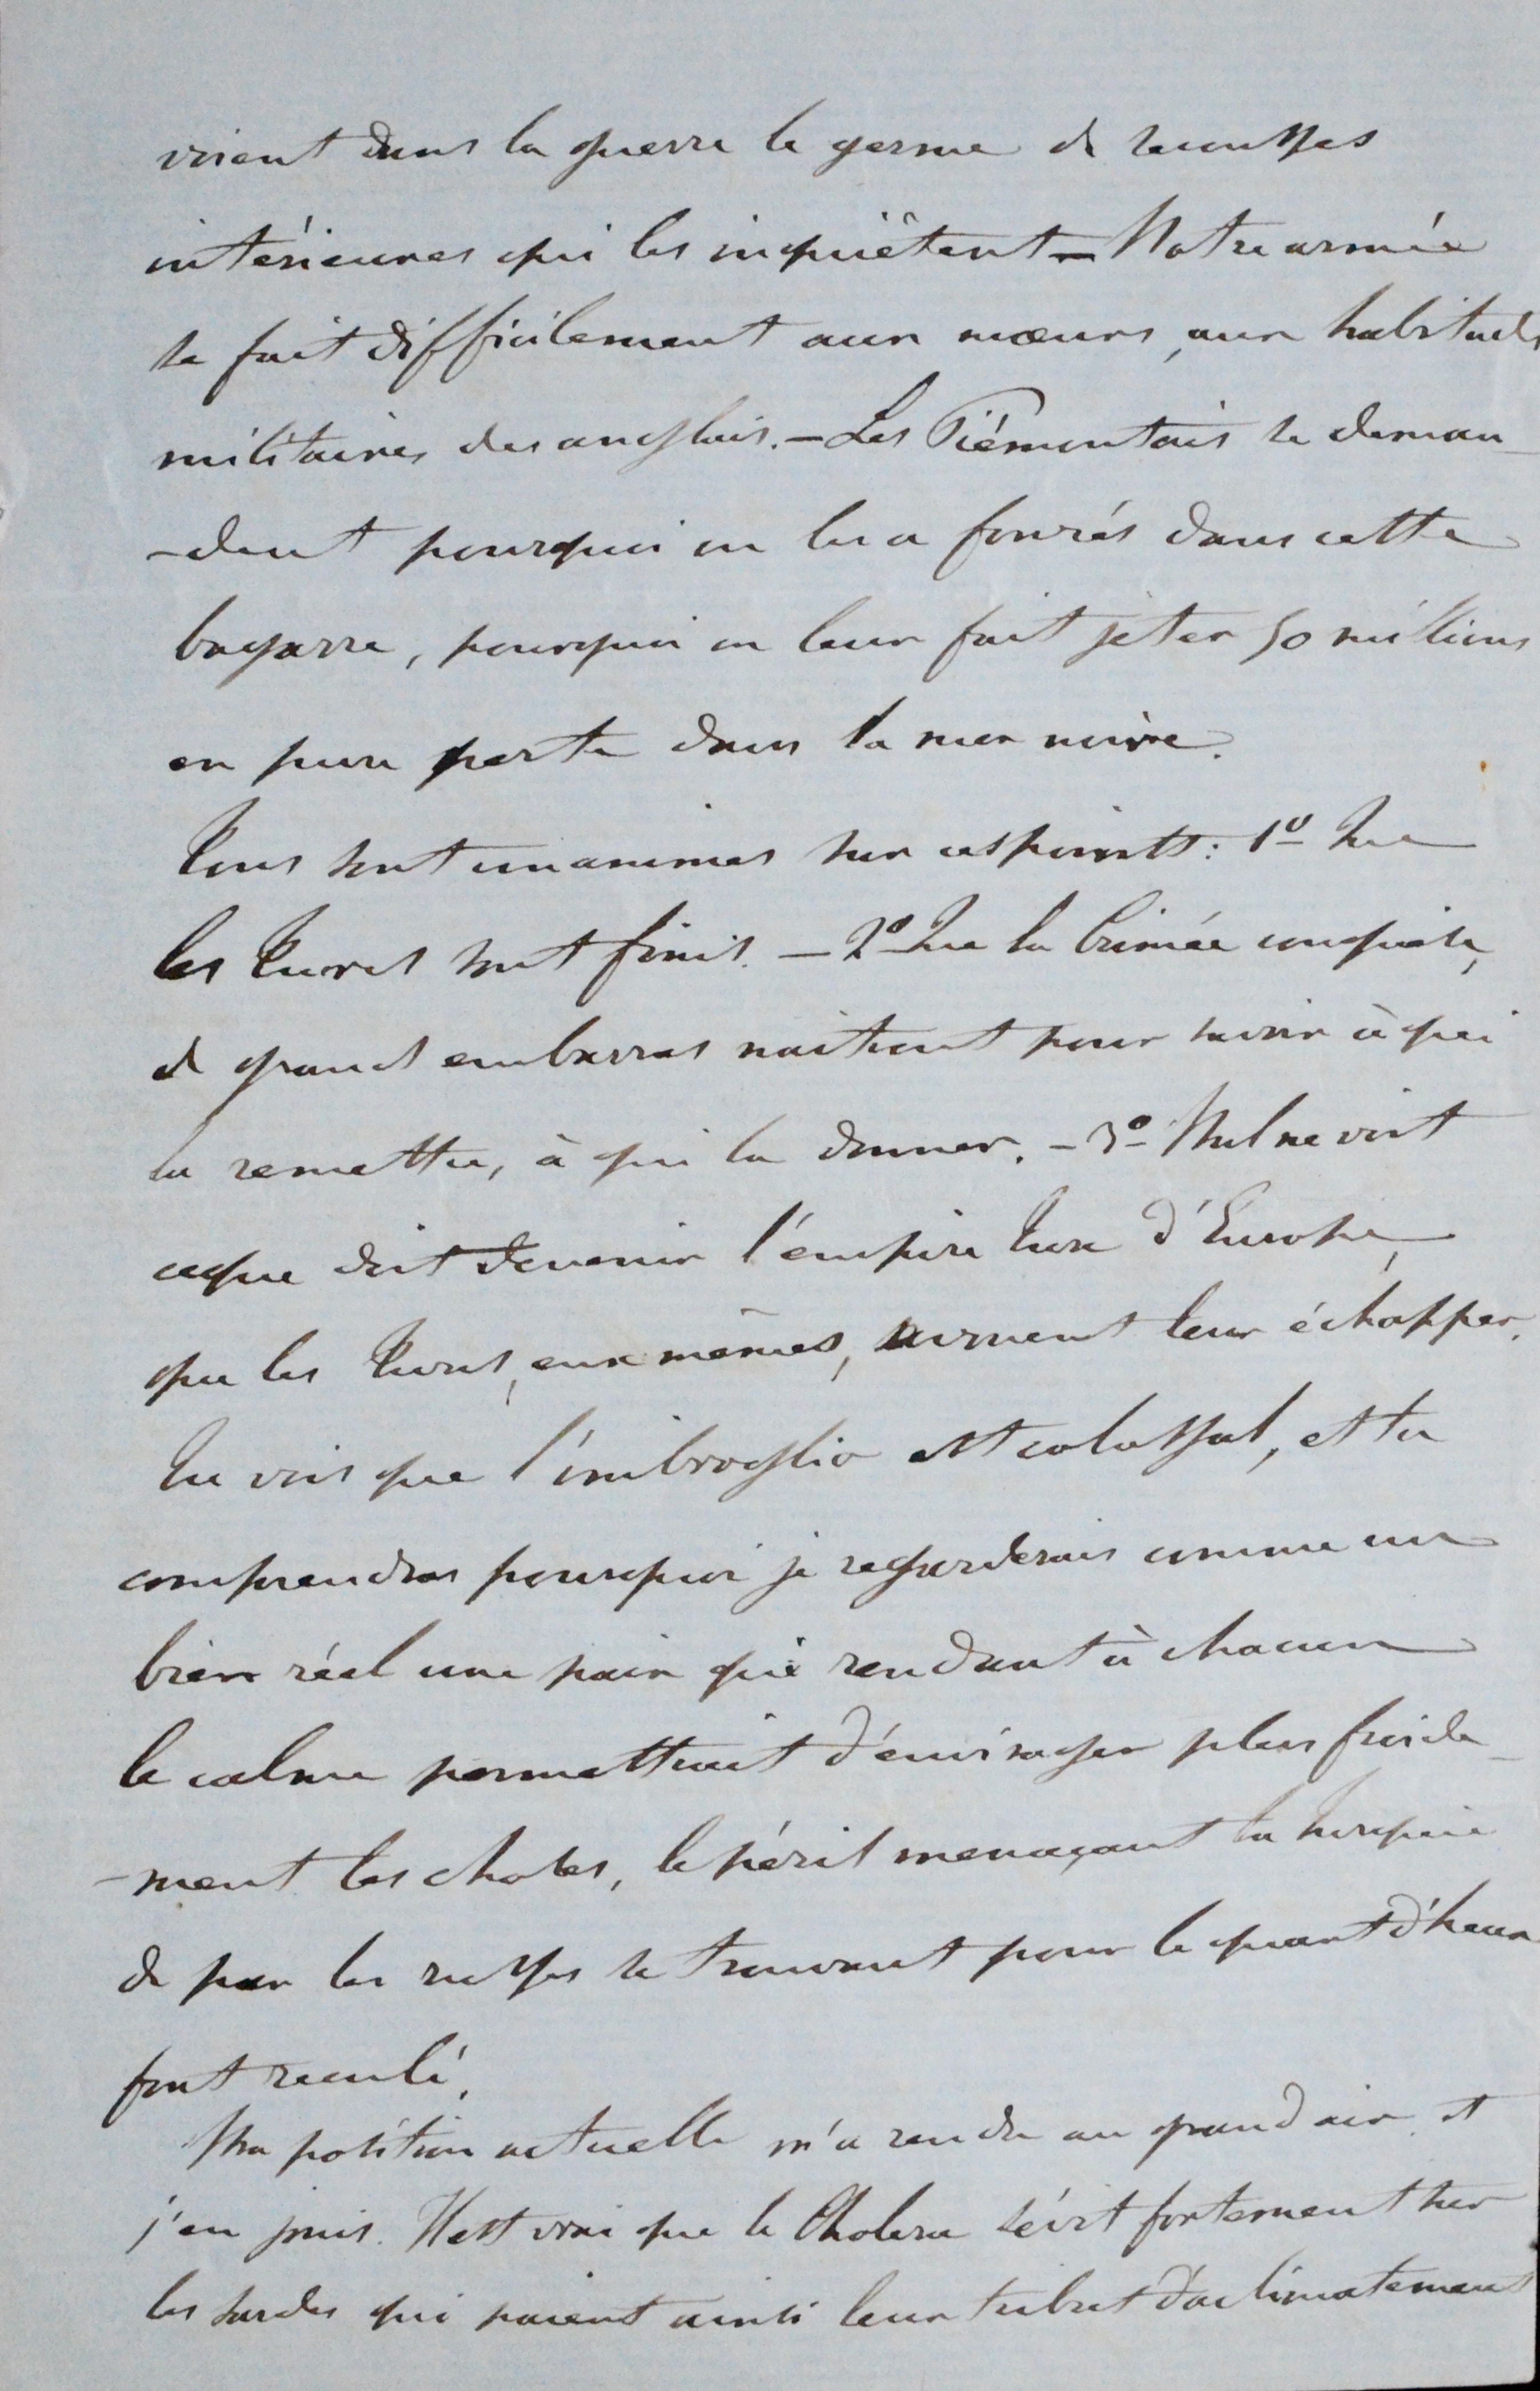 voient dans la guerre le germe de secousses
intérieures qui les inquiètent – Notre armée
se fait difficilement aux mœurs, aux habitudes
militaires des anglais. – Les Piémontais se deman-
-dent pourquoi on les a fourrés dans cette
bagarre, pourquoi on leur fait jeter 50 millions
en pure perte dans la mer noire.
Tous sont unanimes sur ces points : 1º Que
les Turcs sont finis. – 2º Que la Crimée conquise,
de grands embarras naitront pour savoir à qui
la remettre, à qui la donner. – 3º Nul ne voit
ce que doit devenir l'empire turc d'Europe,
que les Turcs, eux mêmes, sentent leur échapper.
Tu vois que l'imbroglio est colossal, et tu
comprendras pourquoi je regarderais comme un
bien réel une paix qui rendant à chacun
le calme permettrait d'envisager plus froide-
-ment les choses, le péril menaçant la turquie
de par les russes se trouvant pour le quart d'heure
fort reculé.
Ma position actuelle m'a rendu au grand air et
j'en jouis. Il est vrai que le Cholera sévit fortement sur
les sardes qui paient ainsi leur tribut d'aclimatement